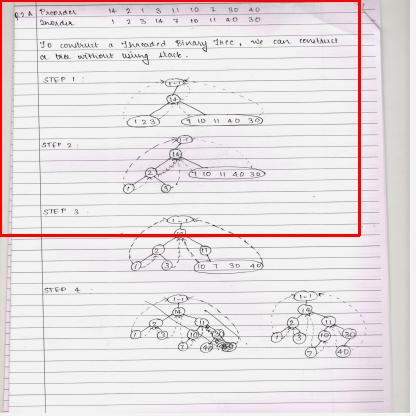 Q.2.A Preorder 14 2 1 3 11 10 7 30 40
Inorder 1 2 3 14 7 10 11 40 30
To construct a Threaded Binary Tree, we can construct
a tree without using stack.
STEP 1 :
14
1 2 3 7 10 11 40 30
STEP 2 :
14
2 7 10 11 40 30
1 3
STEP 3 :
2 11
1 3 10 7 30 40
STEP 4 :
14 14
2 11 2 11
1 3 10 1 3 10 30
7 40 7 40